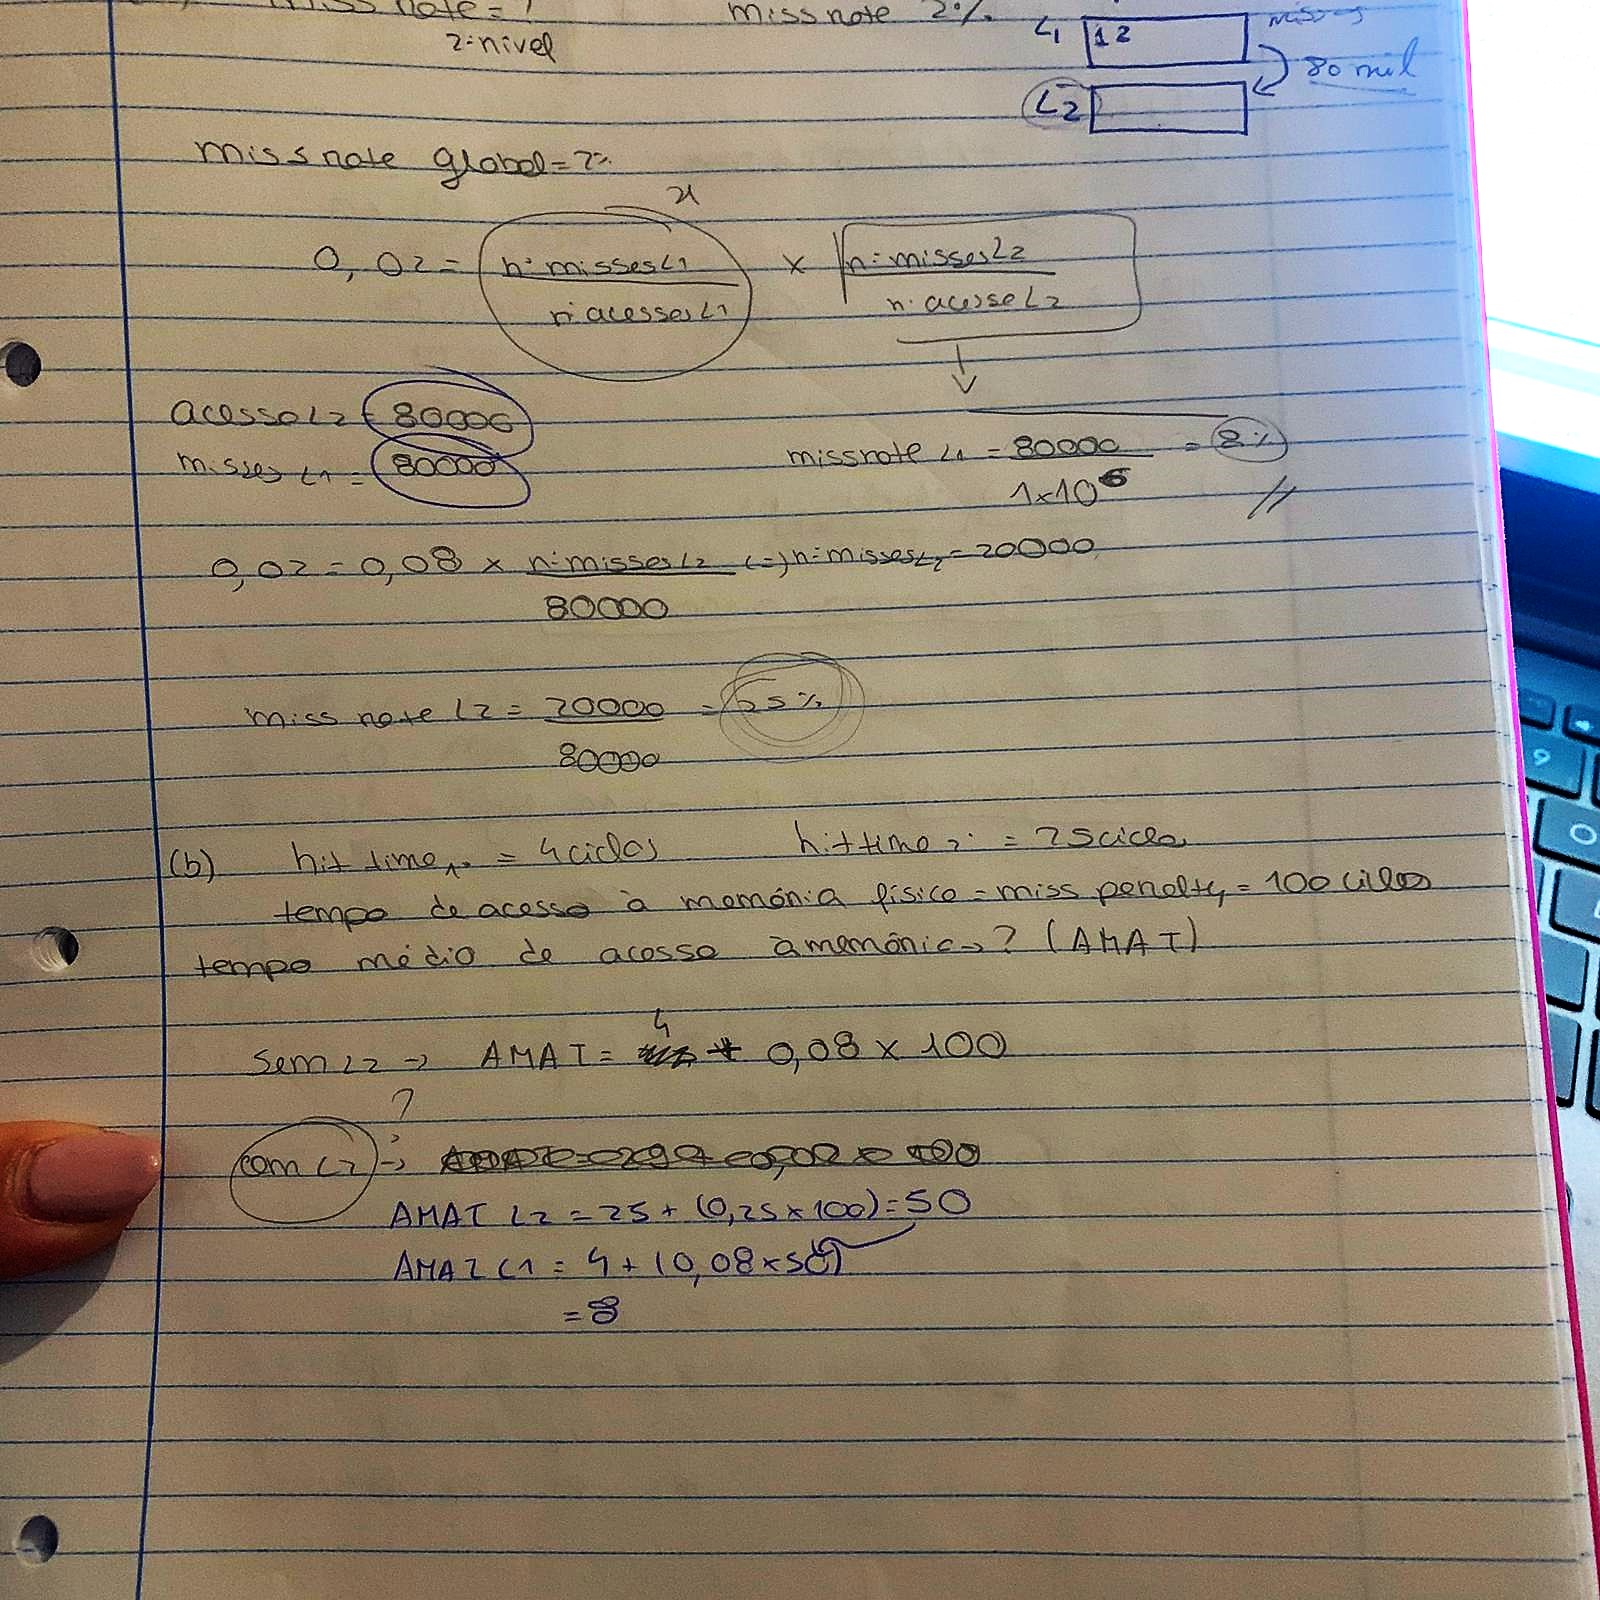 miss rate = ?
2º nivel
miss rate 2%
L1 12 misses
80 mil
L2
miss rate global = 2%
x
0,02 = nº misses L1 × nº misses L2
nº acesses L1 n. acesso L2
acesso L2 = 80000
misses L1 = 80000
miss rate L1 = 80000 = 8%
1×10⁶ //
0,02 = 0,08 × nº misses L2 (=) nº misses L2 = 20000
80000
miss rate L2 = 20000 = 25%
80000
(b) hit time 1º = 4 ciclos hit time 2º = 25 ciclos
tempo de acesso à memória física = miss penalty = 100 ciclos
tempo médio de acesso à memória → ? (AMAT)
Sem L2 → AMAT = 4 + 0,08 × 100
?
com L2 →
AMAT L2 = 25 + (0,25 × 100) = 50
AMAT L1 = 4 + (0,08 × 50)
= 8